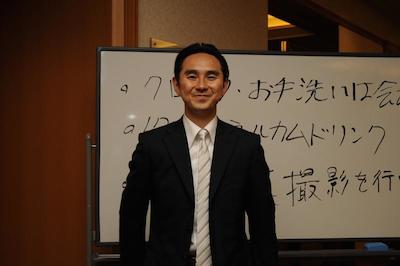 ・ク ・お手洗いは会
・ ルカムドリンク
撮影を行